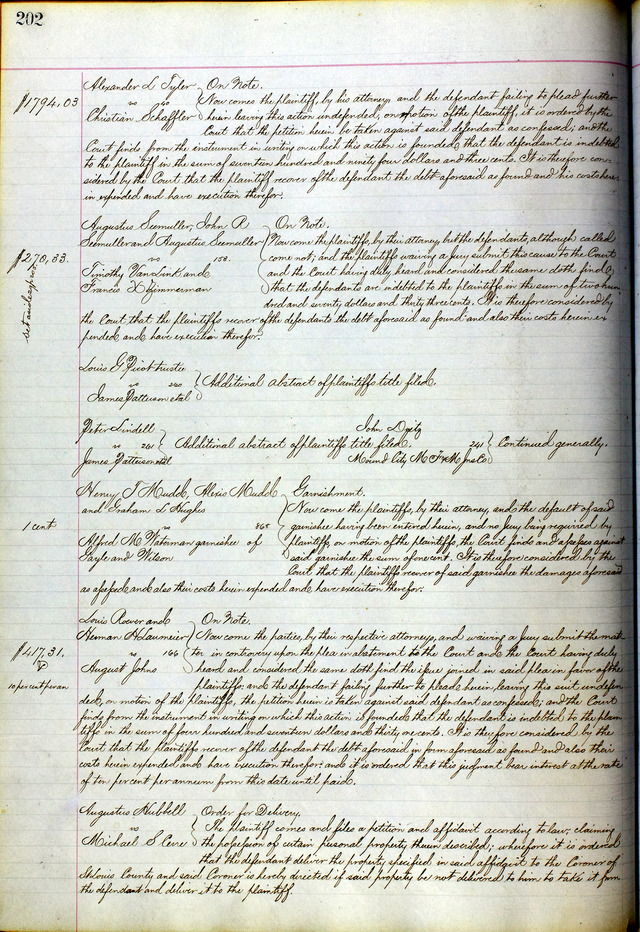 202
Alexander L Tyler On Note.
$1794.03 Now comes the plaintiff, by his attorney and the defendant failing to plead further
vs 60
Christian Schaffler herein leaving this action undefended, on motion of the plaintiff, it is ordered by the
Court that the petition herein be taken against said defendant as confessed; and the
Court finds from the instrument in writing on which this action is founded that the defendant is indebted
to the plaintiff in the sum of seventeen hundred and ninety four dollars and three cents. It is therefore con-
sidered by the Court that the plaintiff recover of the defendant the debt aforesaid as found and his costs here-
in expended and have execution therefor.
Augustus Seemuller, John R On Note.
Seemuller and Augustus Seemuller Now come the plaintiffs, by their attorney but the defendants, although called
$270,33. vs 158. come not; and the plaintiffs waiving a jury submit this cause to the Court
Timothy Van Link and and the Court having duly heard and considered the same doth find,
Francis X Zimmerman that the defendants are indebted to the plaintiffs in the sum of two hun-
dred and seventy dollars and thirty three cents. It is therefore considered by
the Court that the plaintiffs recover of the defendants the debt aforesaid as found and also their costs herein ex-
pended and have execution therefor.
Louis G Picot trustee
vs 220 Additional abstract of plaintiffs title filed.
James Patterson etal
Peter Lindell John Deitz
vs 221 Additional abstract of plaintiffs title filed. 241 Continued generally.
James Patterson etal Mound City M F & M Ins Co
Henry T Mudd, Alexis Mudd Garnishment.
and Graham L Hughes Now come the plaintiffs, by their attorney, and the default of said
1 cent vs 865 garnishee having been entered herein, and no jury being required by
Alfred M Waterman garnishee of plaintiffs, on motion of the plaintiffs, the Court finds and assesses against
Sayle and Witson said garnishee the sum of one cent. It is therefore considered by the
Court, that the plaintiffs recover of said garnishee the damages aforesaid
as assessed and also their costs herein expended and have execution therefor.
Louis Rower and On Note.
Herman H Laumeier Now come the parties, by their respective attorneys, and waiving a jury submit the mat-
$417,31. vs 166 ter in controversy upon the plea in abatement to the Court and the Court having duly
August Johns heard and considered the same doth find the issue joined in said plea in favor of the
10 per cent per an plaintiffs and the defendant failing further to plead herein, leaving this suit undefen-
ded, on motion of the plaintiffs, the petition herein is taken against said defendant as confessed; and the Court
finds from the instrument in writing on which this action is founded that the defendant is indebted to the plain-
tiffs in the sum of four hundred and seventeen dollars and thirty one cents. It is therefore considered by the
Court that the plaintiffs recover of the defendant the debt aforesaid in form aforesaid as found and also their
costs herein expended and have execution therefor and it is ordered that this judgment bear interest at the rate
of ten percent per annum from this date until paid.
Augustus Hubbell Order for Delivery.
vs The plaintiff comes and files a petition and affidavit according to law; claiming
Michael S Cerre the possession of certain personal property therein described; wherefore it is ordered
that the defendant deliver the property specified in said affidavit to the Coroner of
St Louis County and said Coroner is hereby directed if said property be not delivered to him to take it from
the defendant and deliver it to the plaintiff.